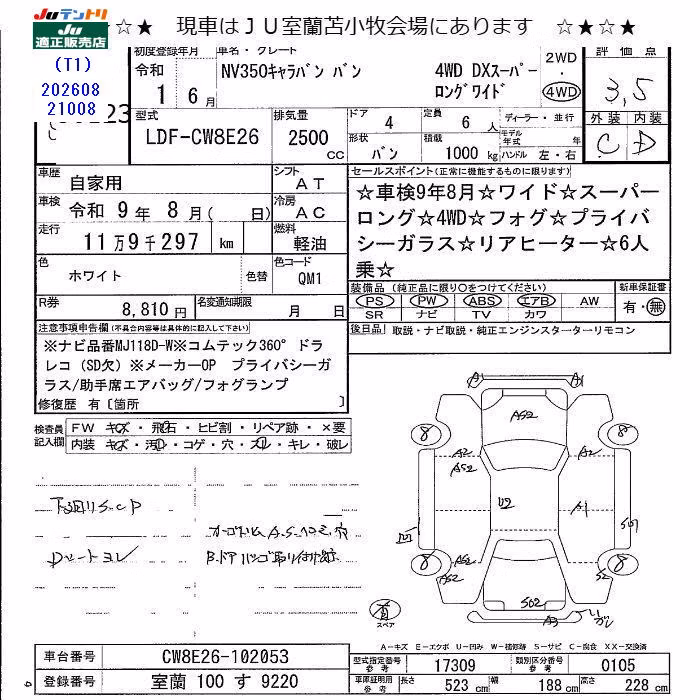 JUテントリ
JU
適正販売店
☆★ 現車はJU室蘭苫小牧会場にあります ☆★☆★
(T1)
202608
21008
初度登録年月
令和
1 6月
車名・グレード
NV350キャラバン バン 4WD DXスーパー
ロングワイド
2WD
・
4WD
評価点
3.5
外装 内装
C D
型式
LDF-CW8E26
排気量
2500
cc
ドア
4
定員
6人
形状
バン
積載
1000kg
ディーラー・並行
モデル年式 年
ハンドル 左・右
車歴
自家用
シフト
AT
車検
令和 9年 8月( 日)
冷房
AC
走行
11万9千297 km
燃料
軽油
色
ホワイト
色替
色コード
QM1
R券
8,810円
名変通知期限
月 日
セールスポイント(正常に機能するものに限ります)
☆車検9年8月☆ワイド☆スーパー
ロング☆4WD☆フォグ☆プライバ
シーガラス☆リアヒーター☆6人
乗☆
装備品 (純正品に限り○をつけてください)
PS PW ABS エアB AW
SR ナビ TV カワ
新車保証書
有・無
後日品 取説・ナビ取説・純正エンジンスターターリモコン
注意事項申告欄(不具合内容等は具体的に記入して下さい)
※ナビ品番MJ118D-W※コムテック360°ドラ
レコ(SD欠)※メーカーOP プライバシーガ
ラス/助手席エアバッグ/フォグランプ
修復歴 有〔箇所 〕
検査員記入欄
FW キズ・飛石・ヒビ割・リペア跡・×要
内装 キズ・汚れ・コゲ・穴・スレ・キレ・破レ
下廻りS.C.P
A1 A1
AS2
8 8
A2 A2
AS2
U2
A1
凹
AS2
S2
8 8
S02
A3
有
スペア
A-キズ E-エクボ U-凹み W-補修跡 S-サビ C-腐食 XX-交換済
車台番号 CW8E26-102053
登録番号 室蘭 100 す 9220
型式指定番号 参考 17309
類別区分番号 参考 0105
車庫証明用 参考
長さ 523 cm
幅 188 cm
高さ 228 cm